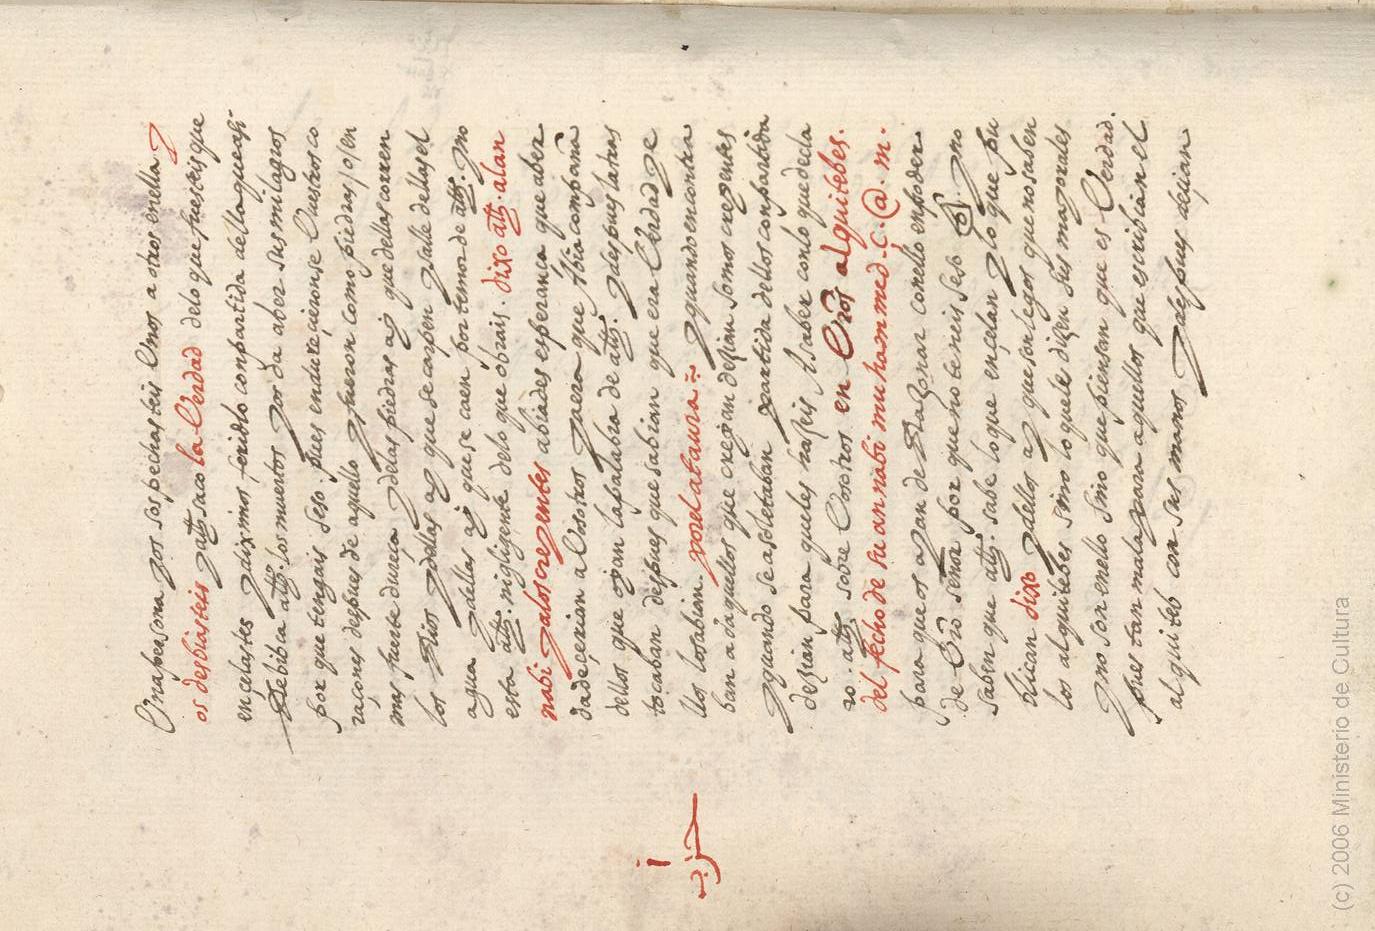 Una persona y os sospechasteis Unos a otros en ella y
os desbiasteis y allh saco la Verdad delo que fuesteis que
ençelastes y diximos feridlo con partida della que ansi
Rebibca allh. los muertos y os da a ber sus milagros
por que tengais seso. pues endureçieronse Vuestros co
raçones despues de aquello y fueron como piedras / o / en
mas fuerte dureça y delas piedras ay que dellas corren
los Rios y dellas ay que se carpen y sale dellas el
agua y dellas ay que se caen por temor de allh. y no
esta allh. nigligente delo que obrais. dixo allh. alan
nabi y alos creyentes abiades esperança que aber
dadeçerian a Vosotros y aera que abia compaña
dellos que oyan la palabra de allh. y despues la tras
tocaban despues que sabian que era Verdad y e
llos lo sabian. por el ataura y quando encontra
ban a daquellos que creyan deçian somos creyentes
y quando se asoletaban partida dellos con partida
deçian para que les haçeis A saber con lo que decla
ro. allh. sobre Vosotros en Vros alquitebes.
del fecho de su annabi muhammed. ç. @. m.
para que os ayan de Raçonar con ello en poder
de Vro señor por que no teneis seso. y no
saben que allh. sabe lo que ençelan y lo que pu
blican dixo y dellos ay que son legos que no saben
los alquitebes sino lo que le diçen sus mayorales
y no son en ello sino que piensan que es Verdad.
pues tan mala para aquellos que escribian el
alquiteb con sus manos y despues deçian
حزب
ا
(c) 2006 Ministerio de Cultura